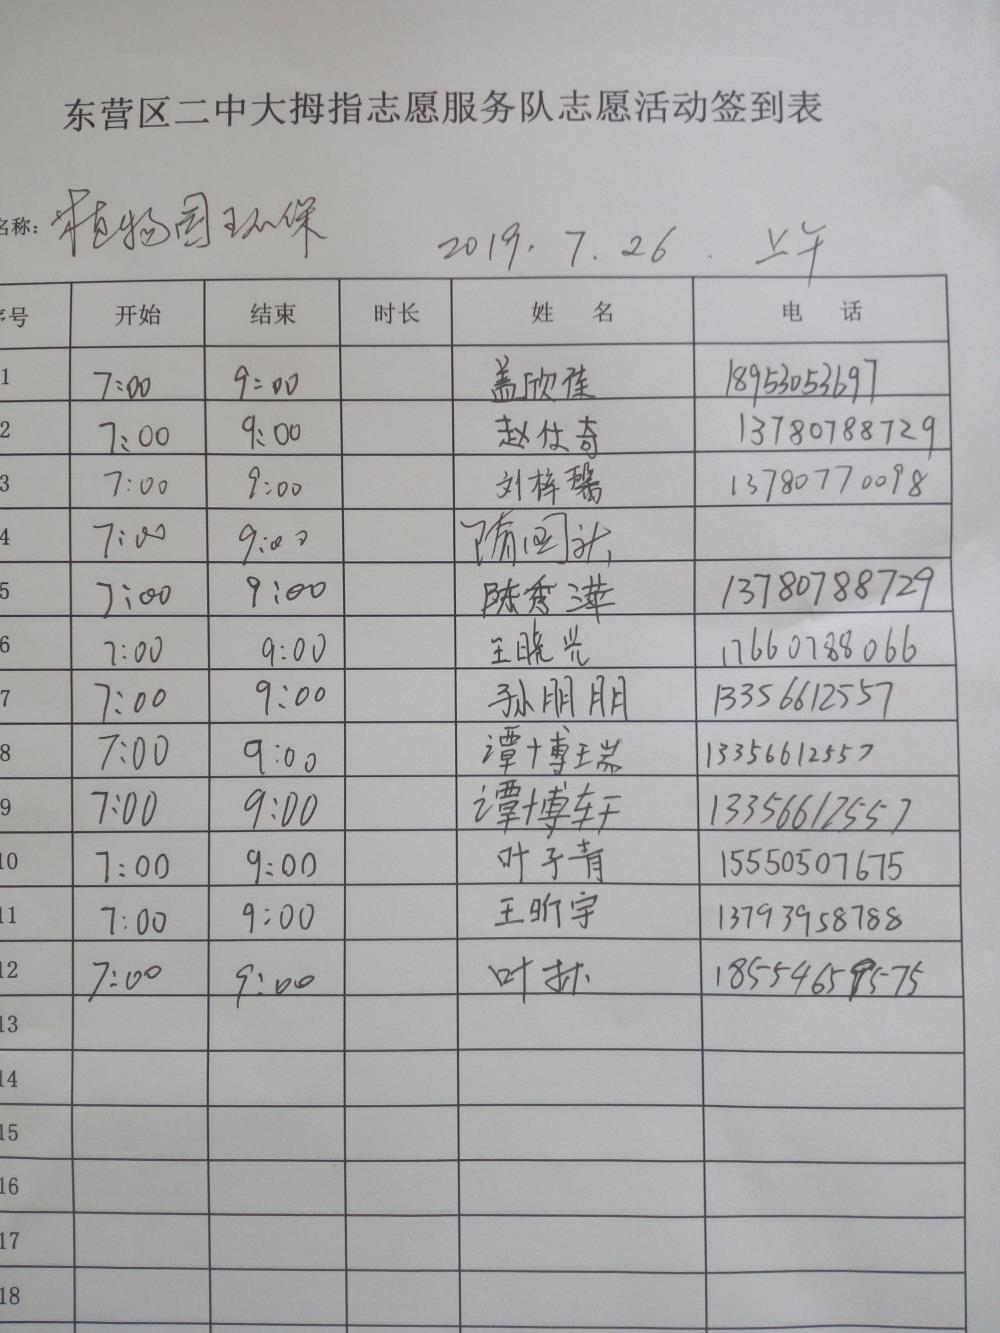 东营区二中大拇指志愿服务队志愿活动签到表
名称: 植物园环保 2019.7.26. 上午
序号 开始 结束 时长 姓名 电话
1 7:00 9:00 盖欣佳 18953053697
2 7:00 9:00 赵仕奇 13780788729
3 7:00 9:00 刘梓 13780770098
4 7:00 9:00 隋国
5 7:00 9:00 陈秀 13780788729
6 7:00 9:00 王晓兴 17660788066
7 7:00 9:00 孙朋朋 13356612557
8 7:00 9:00 谭博瑞 13356612557
9 7:00 9:00 谭博轩 13356612557
10 7:00 9:00 叶子青 15550507675
11 7:00 9:00 王昕宇 13793958788
12 7:00 9:00 叶林
13
14
15
16
17
18